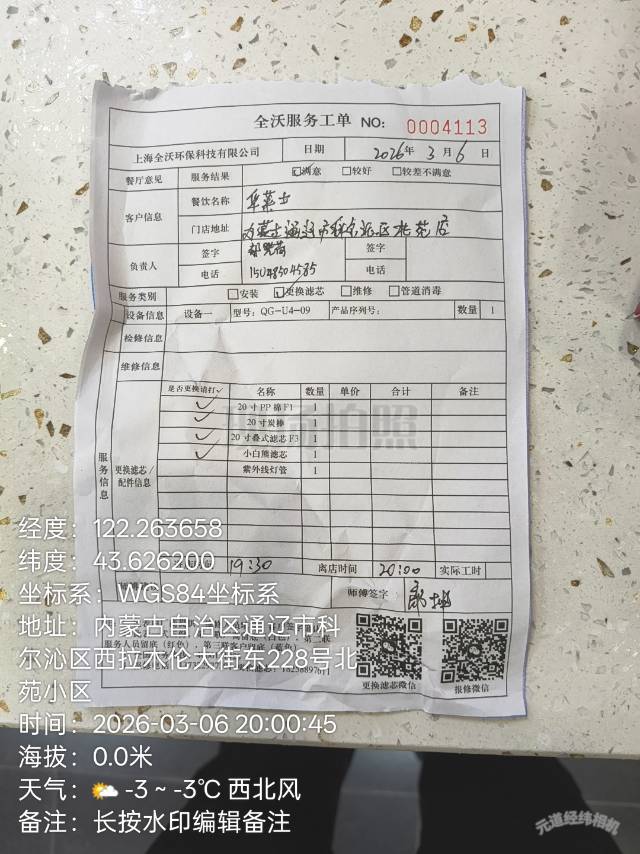 全沃服务工单 NO: 0004113
上海全沃环保科技有限公司 日期 2026年 3月 6日
餐厅意见 服务结果 ☑满意 □较好 □较差不满意
客户信息 餐饮名称 华莱士
门店地址
负责人 签字 签字
电话 15048504585 电话
服务类别 □安装 ☑更换滤芯 □维修 □管道消毒
设备信息 设备一 型号: QG-U4-09 产品序列号: 数量 1
检修信息
维修信息
服务信息
更换滤芯/配件信息
是否更换请打✓ 名称 数量 单价 合计 备注
✓ 20寸PP棉F1 1
✓ 20寸炭棒 1
✓ 20寸叠式滤芯F3 1
✓ 小白熊滤芯 1
紫外线灯管 1
现场拍照
19:30 离店时间 20:00 实际工时
师傅签字
更换滤芯微信 报修微信
经度: 122.263658
纬度: 43.626200
坐标系: WGS84坐标系
地址: 内蒙古自治区通辽市科
尔沁区西拉木伦大街东228号北
苑小区
时间: 2026-03-06 20:00:45
海拔: 0.0米
天气: -3 ~ -3℃ 西北风
备注: 长按水印编辑备注
元道经纬相机